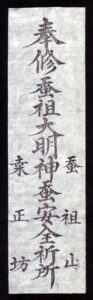 奉修蚕祖大明神蚕安全祈所
蚕祖山
桒正坊